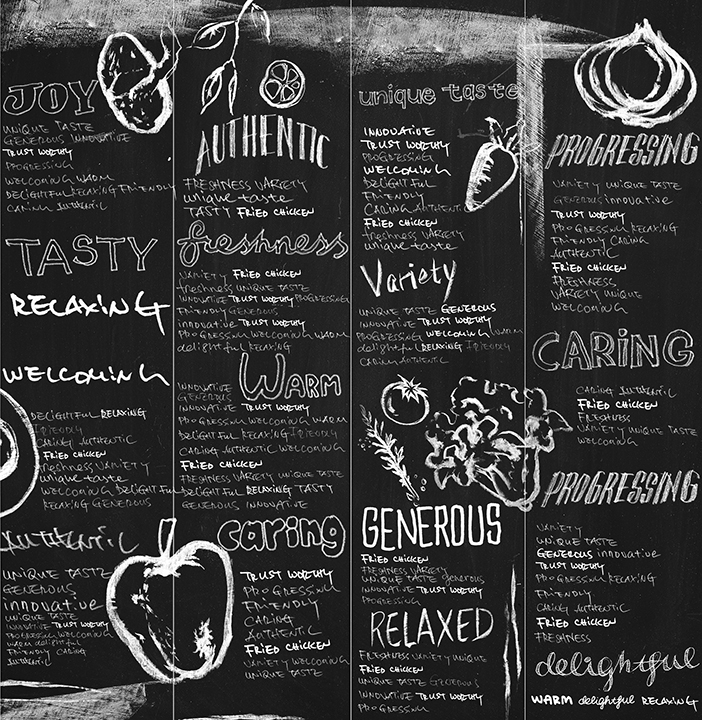 JOY
UNIQUE TASTE
GENEROUS INNOVATIVE
TRUST WORTHY
PROGRESSING
WELCOMING WARM
DELIGHTFUL RELAXING FRIENDLY
CARING AUTHENTIC
TASTY
RELAXING
WELCOMING
DELIGHTFUL RELAXING
FRIENDLY
CARING AUTHENTIC
FRIED CHICKEN
freshness VARIETY
unique taste
WELCOMING DELIGHTFUL
RELAXING GENEROUS
AUTHENTIC
UNIQUE TASTE
GENEROUS
innovative
UNIQUE TASTE
INNOVATIVE TRUST WORTHY
PROGRESSING WELCOMING
WARM delightful
FRIENDLY CARING
AUTHENTIC
AUTHENTIC
FRESHNESS VARIETY
unique taste
TASTY FRIED CHICKEN
freshness
VARIETY FRIED CHICKEN
freshness UNIQUE TASTE
INNOVATIVE TRUST WORTHY PROGRESSING
FRIENDLY GENEROUS
innovative TRUST WORTHY
PROGRESSING WELCOMING WARM
delightful RELAXING
WARM
INNOVATIVE
GENEROUS
INNOVATIVE TRUST WORTHY
PROGRESSING WELCOMING WARM
DELIGHTFUL RELAXING FRIENDLY
CARING AUTHENTIC WELCOMING
FRIED CHICKEN
FRESHNESS VARIETY UNIQUE TASTE
DELIGHTFUL RELAXING TASTY
GENEROUS INNOVATIVE
caring
TRUST WORTHY
PROGRESSING
FRIENDLY
CARING
AUTHENTIC
FRIED CHICKEN
VARIETY WELCOMING
UNIQUE TASTE
unique taste
INNOVATIVE
TRUST WORTHY
PROGRESSING
WELCOMING
DELIGHTFUL
FRIENDLY
CARING AUTHENTIC
FRIED CHICKEN
freshness VARIETY
unique taste
Variety
UNIQUE TASTE GENEROUS
INNOVATIVE TRUST WORTHY
PROGRESSING WELCOMING WARM
delightful RELAXING FRIENDLY
CARING AUTHENTIC
GENEROUS
FRIED CHICKEN
FRESHNESS VARIETY
UNIQUE TASTE generous
INNOVATIVE TRUST WORTHY
PROGRESSING
RELAXED
FRESHNESS VARIETY UNIQUE
FRIED CHICKEN
UNIQUE TASTE GENEROUS
INNOVATIVE TRUST WORTHY
PROGRESSING
PROGRESSING
VARIETY UNIQUE TASTE
GENEROUS innovative
TRUST WORTHY
PROGRESSING RELAXING
FRIENDLY CARING
AUTHENTIC
FRIED CHICKEN
FRESHNESS
VARIETY UNIQUE
WELCOMING
CARING
CARING AUTHENTIC
FRIED CHICKEN
FRESHNESS
VARIETY UNIQUE TASTE
WELCOMING
PROGRESSING
VARIETY
UNIQUE TASTE
GENEROUS innovative
TRUST WORTHY
PROGRESSING RELAXING
FRIENDLY
CARING AUTHENTIC
FRIED CHICKEN
FRESHNESS
delightful
WARM delightful RELAXING